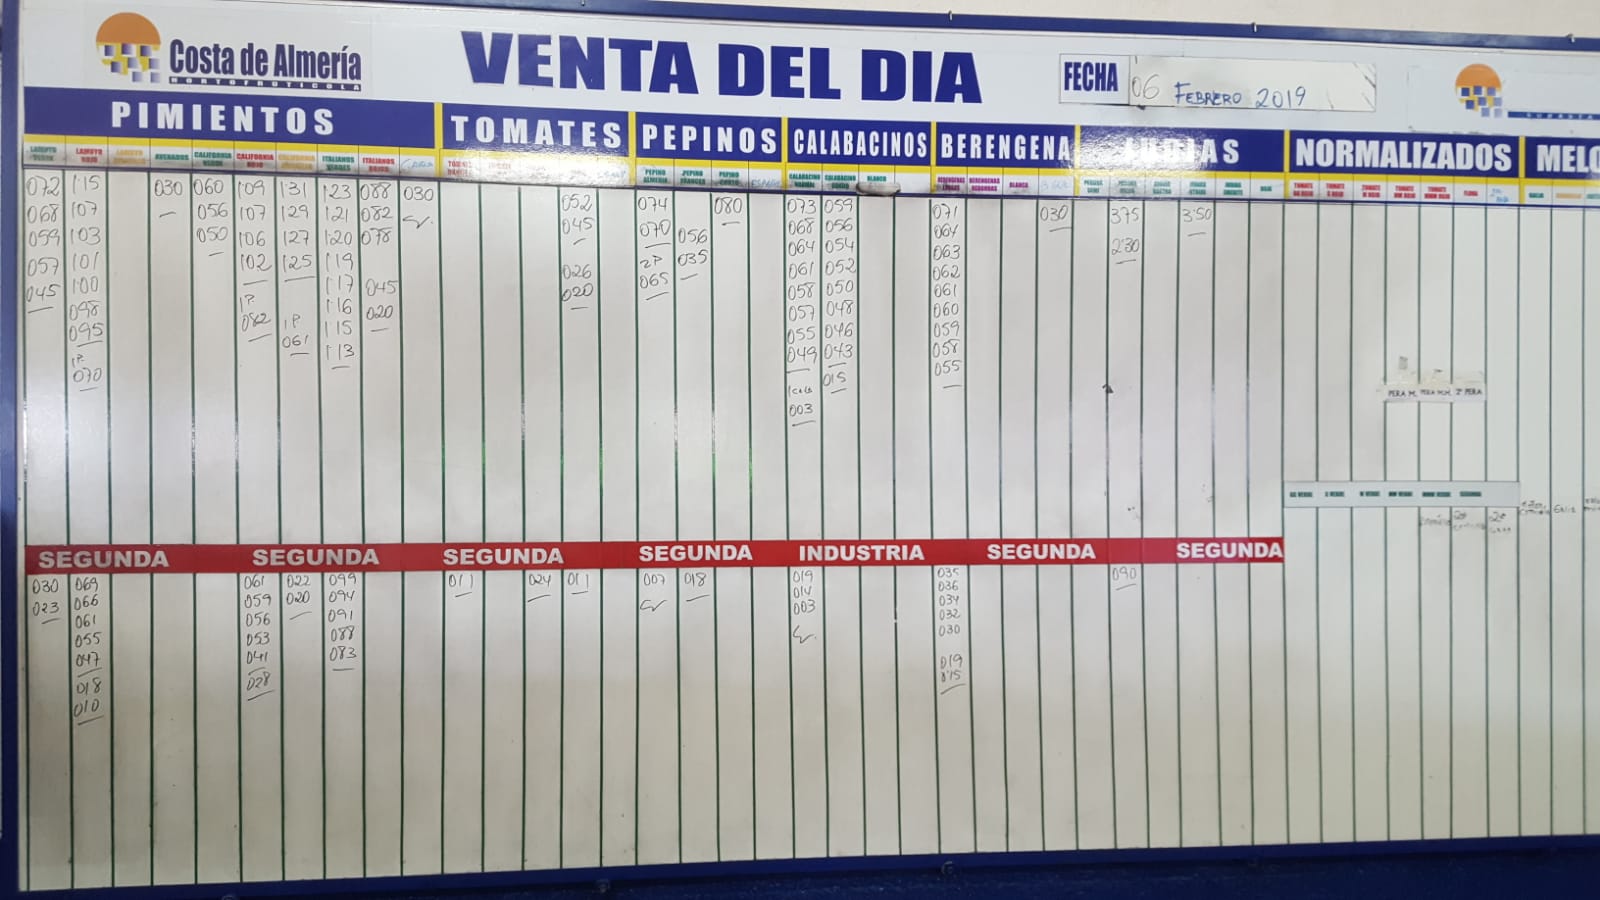 Costa de Almería
HORTOFRUTICOLA
VENTA DEL DIA
FECHA 06 FEBRERO 2019
PIMIENTOS TOMATES PEPINOS CALABACINOS BERENGENA JUDIAS NORMALIZADOS MELO
LAMUYO VERDE
LAMUYO ROJO
ASENADOS
CALIFORNIA VERDE
CALIFORNIA ROJO
ITALIANOS VERDES
ITALIANOS ROJOS
PEPINO ALMERIA
PEPINO FRANCES
PEPINO CORTO
CALABACINO NORMAL
CALABACINO GORDO
BLANCO
BERENGENAS LARGAS
BERENGENAS REDONDAS
BLANCA
072
068
059
057
045
1'15
107
103
101
1'00
098
095
1P.
070
030
060
056
050
1'09
107
106
102
1P.
082
131
129
127
125
1P
061
1'23
1'21
1'20
1'19
1'17
1'16
1'15
1'13
088
082
078
045
020
030
052
045
026
020
074
070
2P
065
056
035
080
073
068
064
061
058
057
055
049
003
059
056
054
052
050
048
046
043
015
071
064
063
062
061
060
059
058
055
030
375
2'30
3'50
PERA M. PERA MM. 2ª PERA
GG VERDE G VERDE M VERDE MM VERDE MMM VERDE SEGUNDA
SEGUNDA SEGUNDA SEGUNDA SEGUNDA INDUSTRIA SEGUNDA SEGUNDA
030
023
069
066
061
055
047
018
010
061
059
056
053
041
028
022
020
099
094
091
088
083
011
024
011
007
018
019
014
003
035
036
034
032
030
019
0'15
090